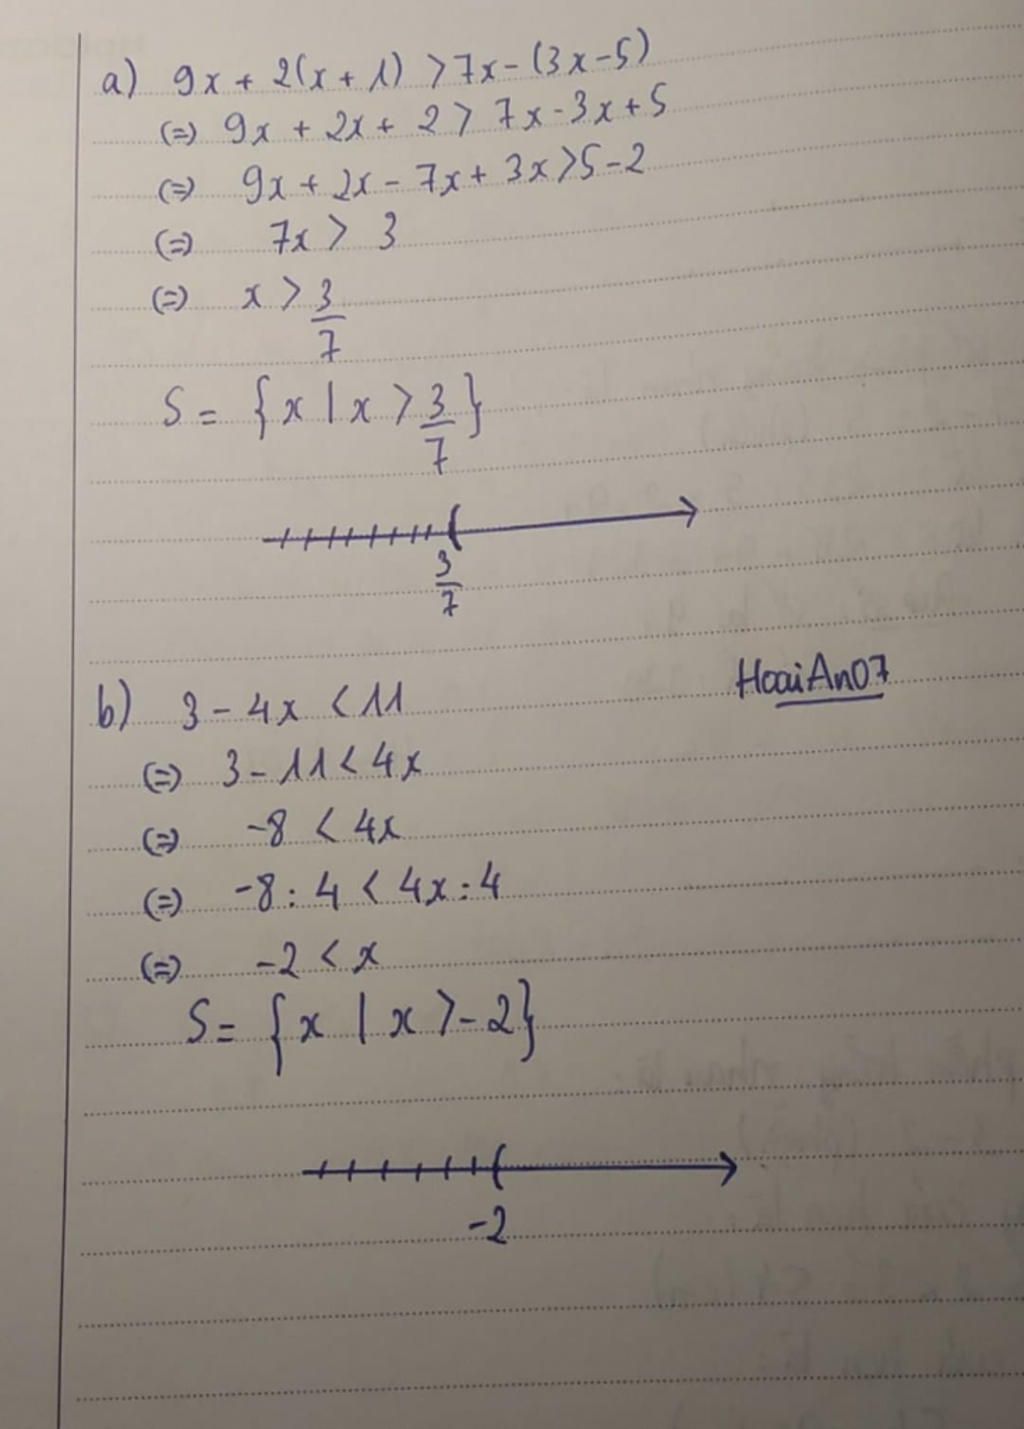 a) 9x + 2(x + 1) > 7x - (3x - 5)
(=) 9x + 2x + 2 > 7x - 3x + 5
(=) 9x + 2x - 7x + 3x > 5 - 2
(=) 7x > 3
(=) x > 3/7
S = {x | x > 3/7}
3/7
HoaiAn07
b) 3 - 4x < 11
(=) 3 - 11 < 4x
(=) -8 < 4x
(=) -8 : 4 < 4x : 4
(=) -2 < x
S = {x | x > -2}
-2